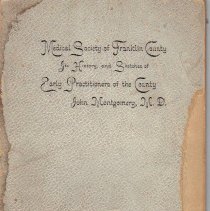 Medical Society of Franklin County
Its History, and Sketches of
Early Practitioners of the County
John Montgomery, M. D.